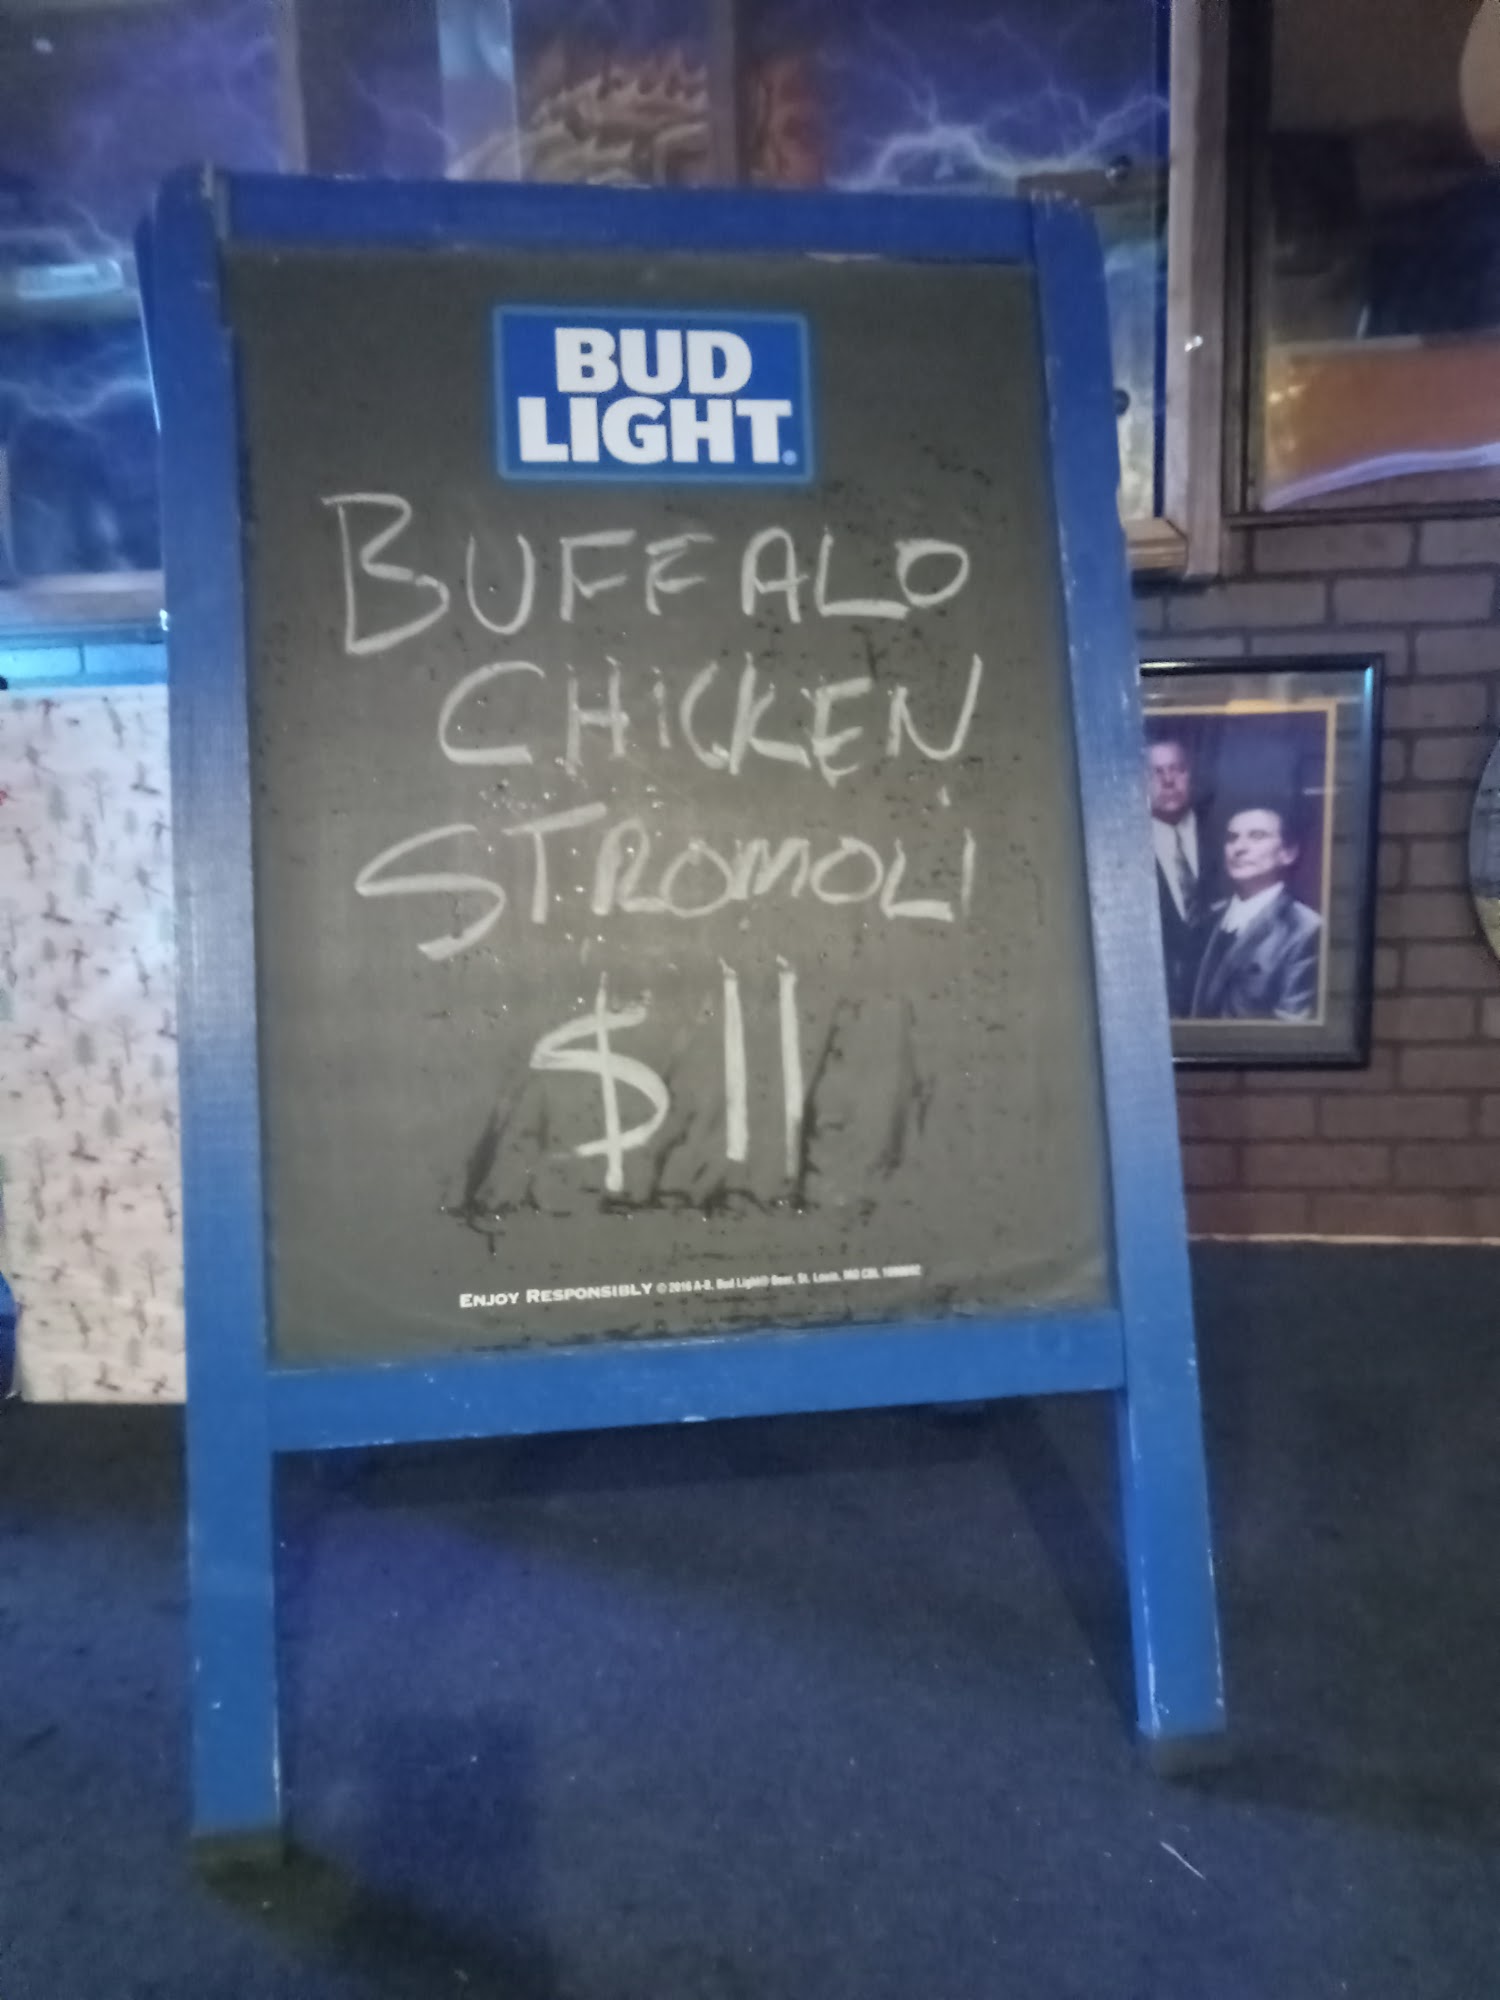 BUD
LIGHT
BUFFALO
CHICKEN
STROMOLI
$11
ENJOY RESPONSIBLY © 2016 A-B, Bud Light® Beer, St. Louis, MO